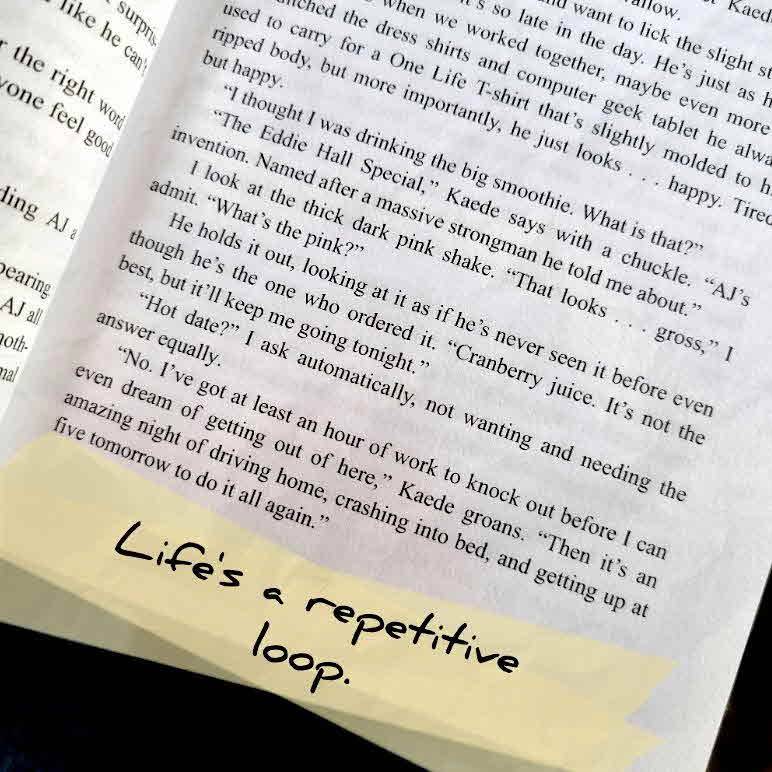 surpris-
like he can't
r the right word
yone feel good
ding AJ a
pearing
AJ all
noth-
mal
Kaed
and want to lick the slight st
it's so late in the day. He's just as h
when we worked together, maybe even more
the dress shirts and computer geek tablet he alwa
used to carry for a One Life T-shirt that's slightly molded to h
ripped body, but more importantly, he just looks . . . happy. Tired
but happy.
"I thought I was drinking the big smoothie. What is that?"
"The Eddie Hall Special," Kaede says with a chuckle. "AJ's
invention. Named after a massive strongman he told me about."
I look at the thick dark pink shake. "That looks . . . gross," I
admit. "What's the pink?"
He holds it out, looking at it as if he's never seen it before even
though he's the one who ordered it. "Cranberry juice. It's not the
best, but it'll keep me going tonight."
"Hot date?" I ask automatically, not wanting and needing the
answer equally.
"No. I've got at least an hour of work to knock out before I can
even dream of getting out of here," Kaede groans. "Then it's an
amazing night of driving home, crashing into bed, and getting up at
five tomorrow to do it all again."
Life's a repetitive
loop.